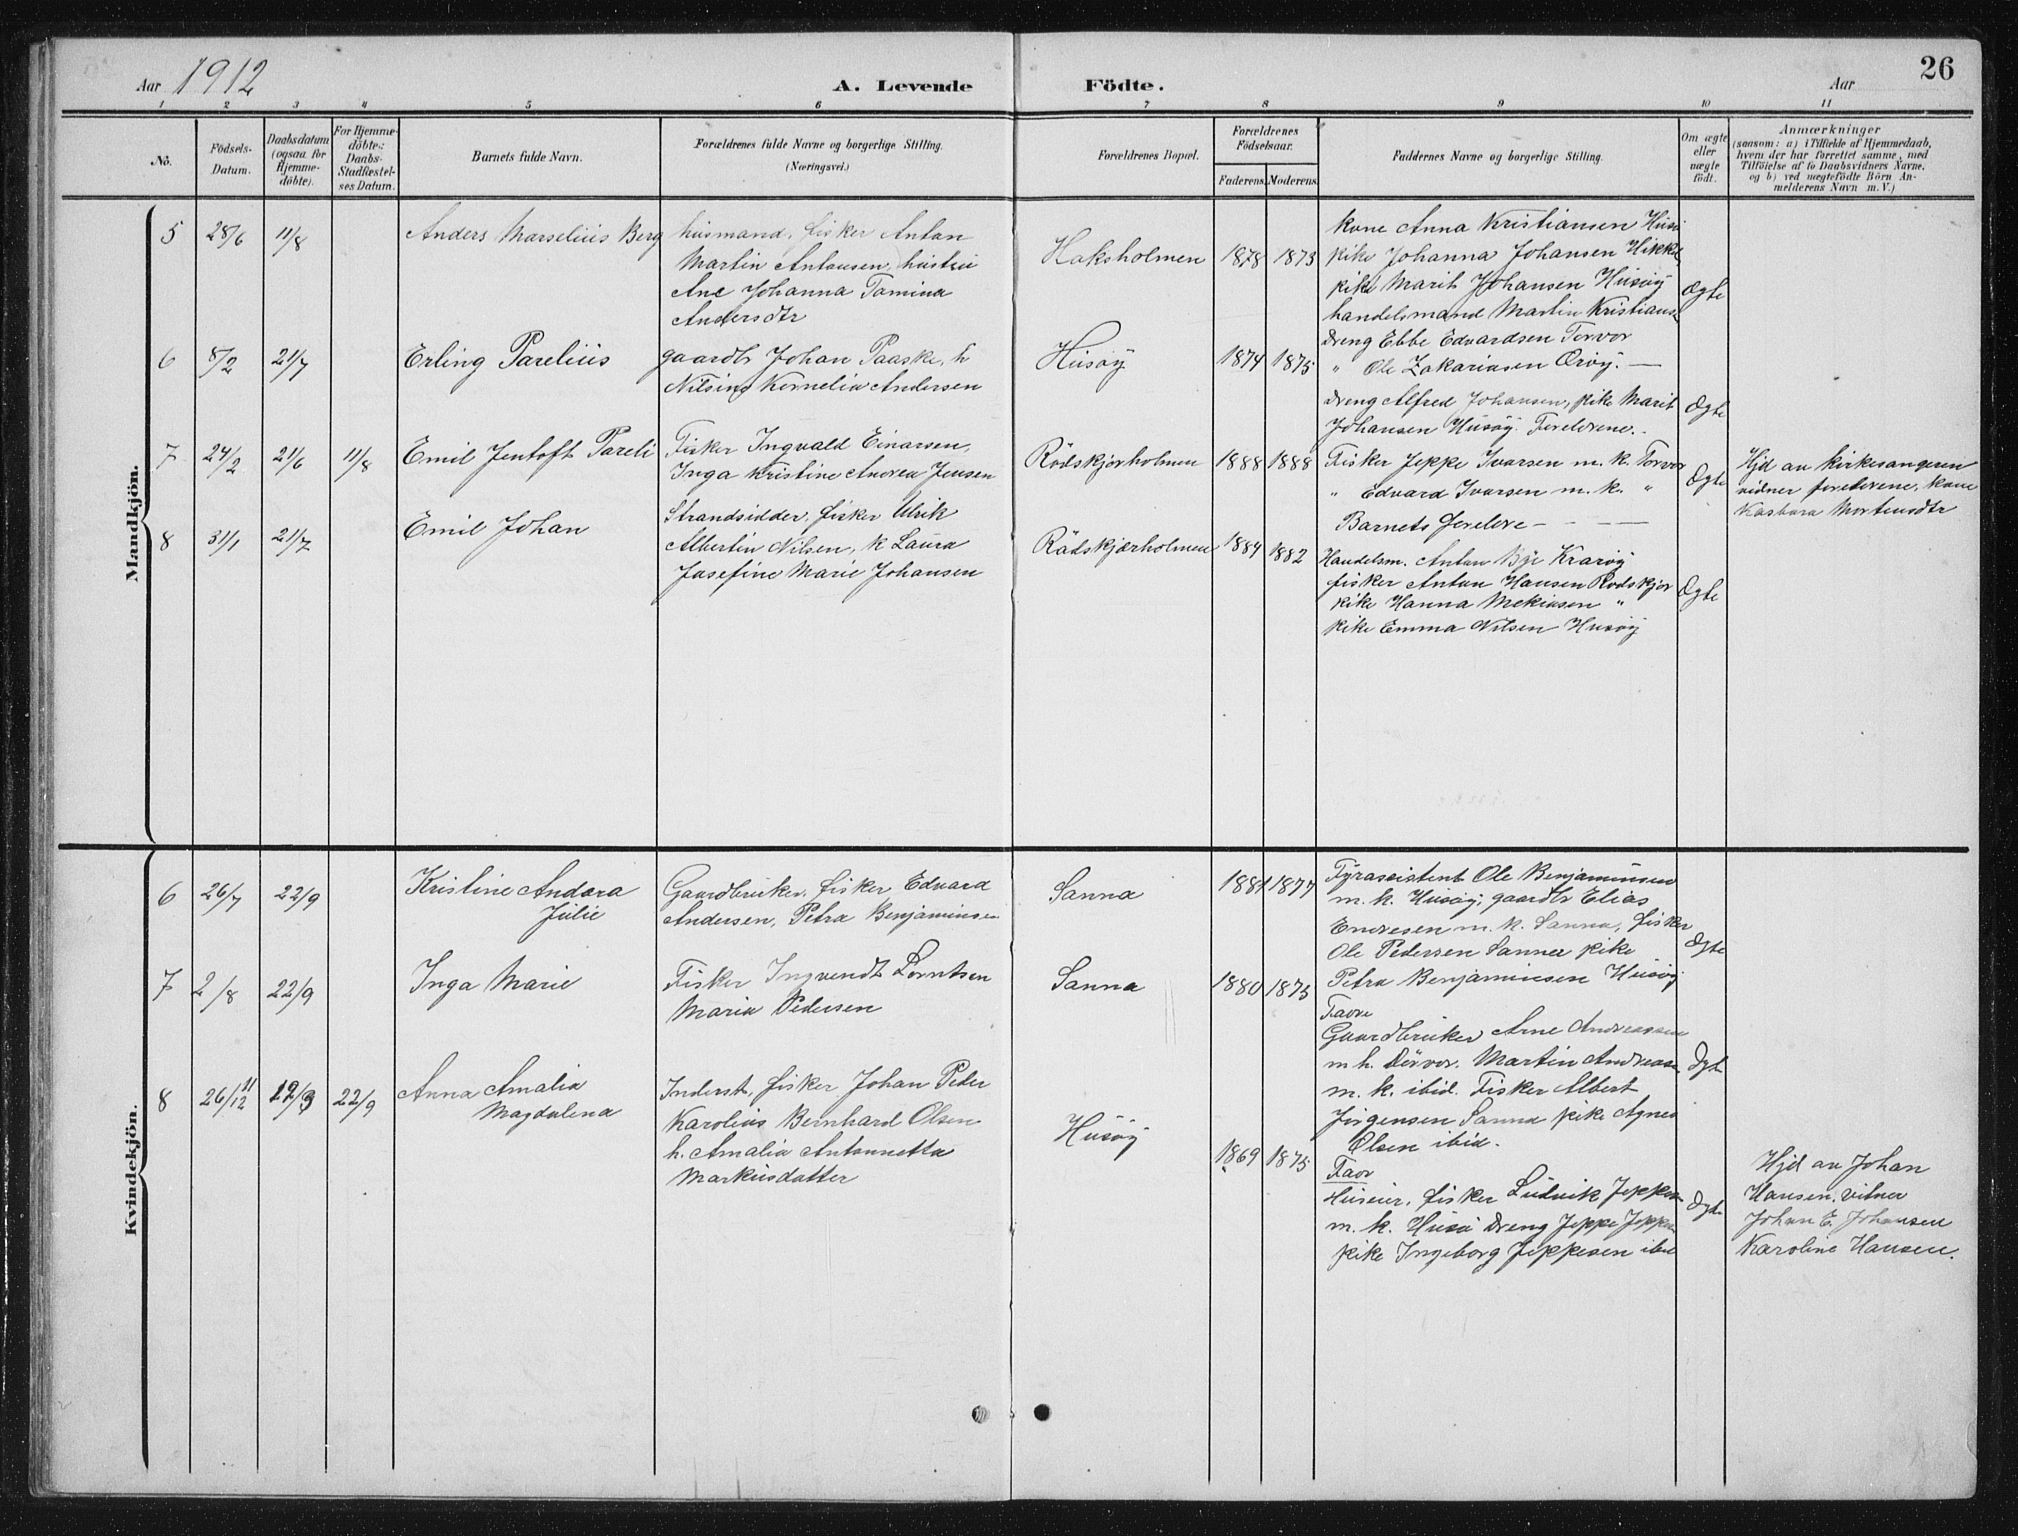 Aar 1912
A. Levende
Födte.
Aar
26
1 2 3 4 5 6 7 8 9 10 11
No.
Födsels-
Datum.
Daabsdatum
(ogsaa for
Hjemme-
döbte).
For Hjemme-
döbte:
Daabs-
Stadfæstel-
ses Datum.
Barnets fulde Navn.
Forældrenes fulde Navne og borgerlige Stilling.
(Næringsvei.)
Forældrenes Bopæl.
Forældrenes
Födselsaar.
Faderens. Moderens.
Faddernes Navne og borgerlige Stilling.
Om ægte
eller
uægte
födt.
Anmærkninger
(saasom: a) i Tilfælde af Hjemmedaab,
hvem der har forrettet samme, med
Tilföielse af to Daabsvidners Navne,
og b) ved uægtefödte Börn An-
melderens Navn m. V.)
Mandkjön.
5 28/6 11/8
Anders Marselius Berg
husmand, fisker Anton
Martin Antonsen, hustru
Ane Johanna Tomina
Andersdtr
Haksholmen
1878 1873
kone Anna Kristiansen
pike Johanna Johansen
pike Marit Johansen Husöy
handelsmand Martin Kristians
Ægte
6 8/2 21/7
Erling Parelius
gaardbr Johan Paaske, h
Nilsine Kornelia Andersen
Husöy
1874 1875
Dreng Ebbe Edvardsen Torvor
" Ole Zakariasen
Dreng Alfred Johansen, pike Marit
Johansen Husöy. Foreldrene.
Ægte
7 24/2 21/6 11/8
Emil Jentoft Pareli
Fisker Ingvald Einarsen,
Inga Kristine Andrea Jensen
Rödskjærholmen
1888 1888
Fisker Jeppe Ivarsen m. k. Torvor
" Edvard Ivarsen m. k. "
Barnets foreldre
Ægte
Hjd av kirkesangeren
vidner foreldrene, kone
Kasbara Mortensdtr
8 31/1 21/7
Emil Johan
Strandsidder, fisker Ulrik
Albertin Nilsen, k Laura
Josefine Marie Johansen
Rödskjærholmen
1884 1882
Handelsm. Anton Bye Kvaröy
fisker Anton Hansen Rödskjær
pike Hanna Mekiasen "
pike Emma Nilsen Husöy
Ægte
Kvindekjön.
6 26/7 22/9
Kristine Andora
Julie
Gaardbruker, fisker Edvard
Andersen, Petra Benjaminsen
Sanna
1881 1877
Fyrassistent Ole Benjaminsen
m. k. Husöy, gaardbr Elias
Endresen m. k. Sanna, fisker
Ole Pedersen Sanna pike
Petra Benjaminsen Husöy
Ægte
7 2/8 22/9
Inga Marie
Fisker Ingvardt Lorntsen
Maria Pedersen
Sanna
1880 1875
Favre
Gaardbruker Arne Andreassen
m. h. Dörvor, Martin Andreas
m. k. ibid. Fisker Albert
Jörgensen Sanna pike Agnes
Olsen ibid.
Ægte
8 26/12 11 12/3 22/9
Anna Amalia
Magdalena
Inderst, fisker Johan Peder
Karolius Bernhard Olsen
h. Amalia Antonnetta
Markusdatter
Husöy
1869 1875
Favr
Huseier, fisker Ludvik Jeppes
m. k. Husö Dreng Jeppe Jeppe
pike Ingeborg Jeppesen ibid
Ægte
Hjd av Johan
Hansen, vitner
Johan E. Johansen
Karoline Hansen.